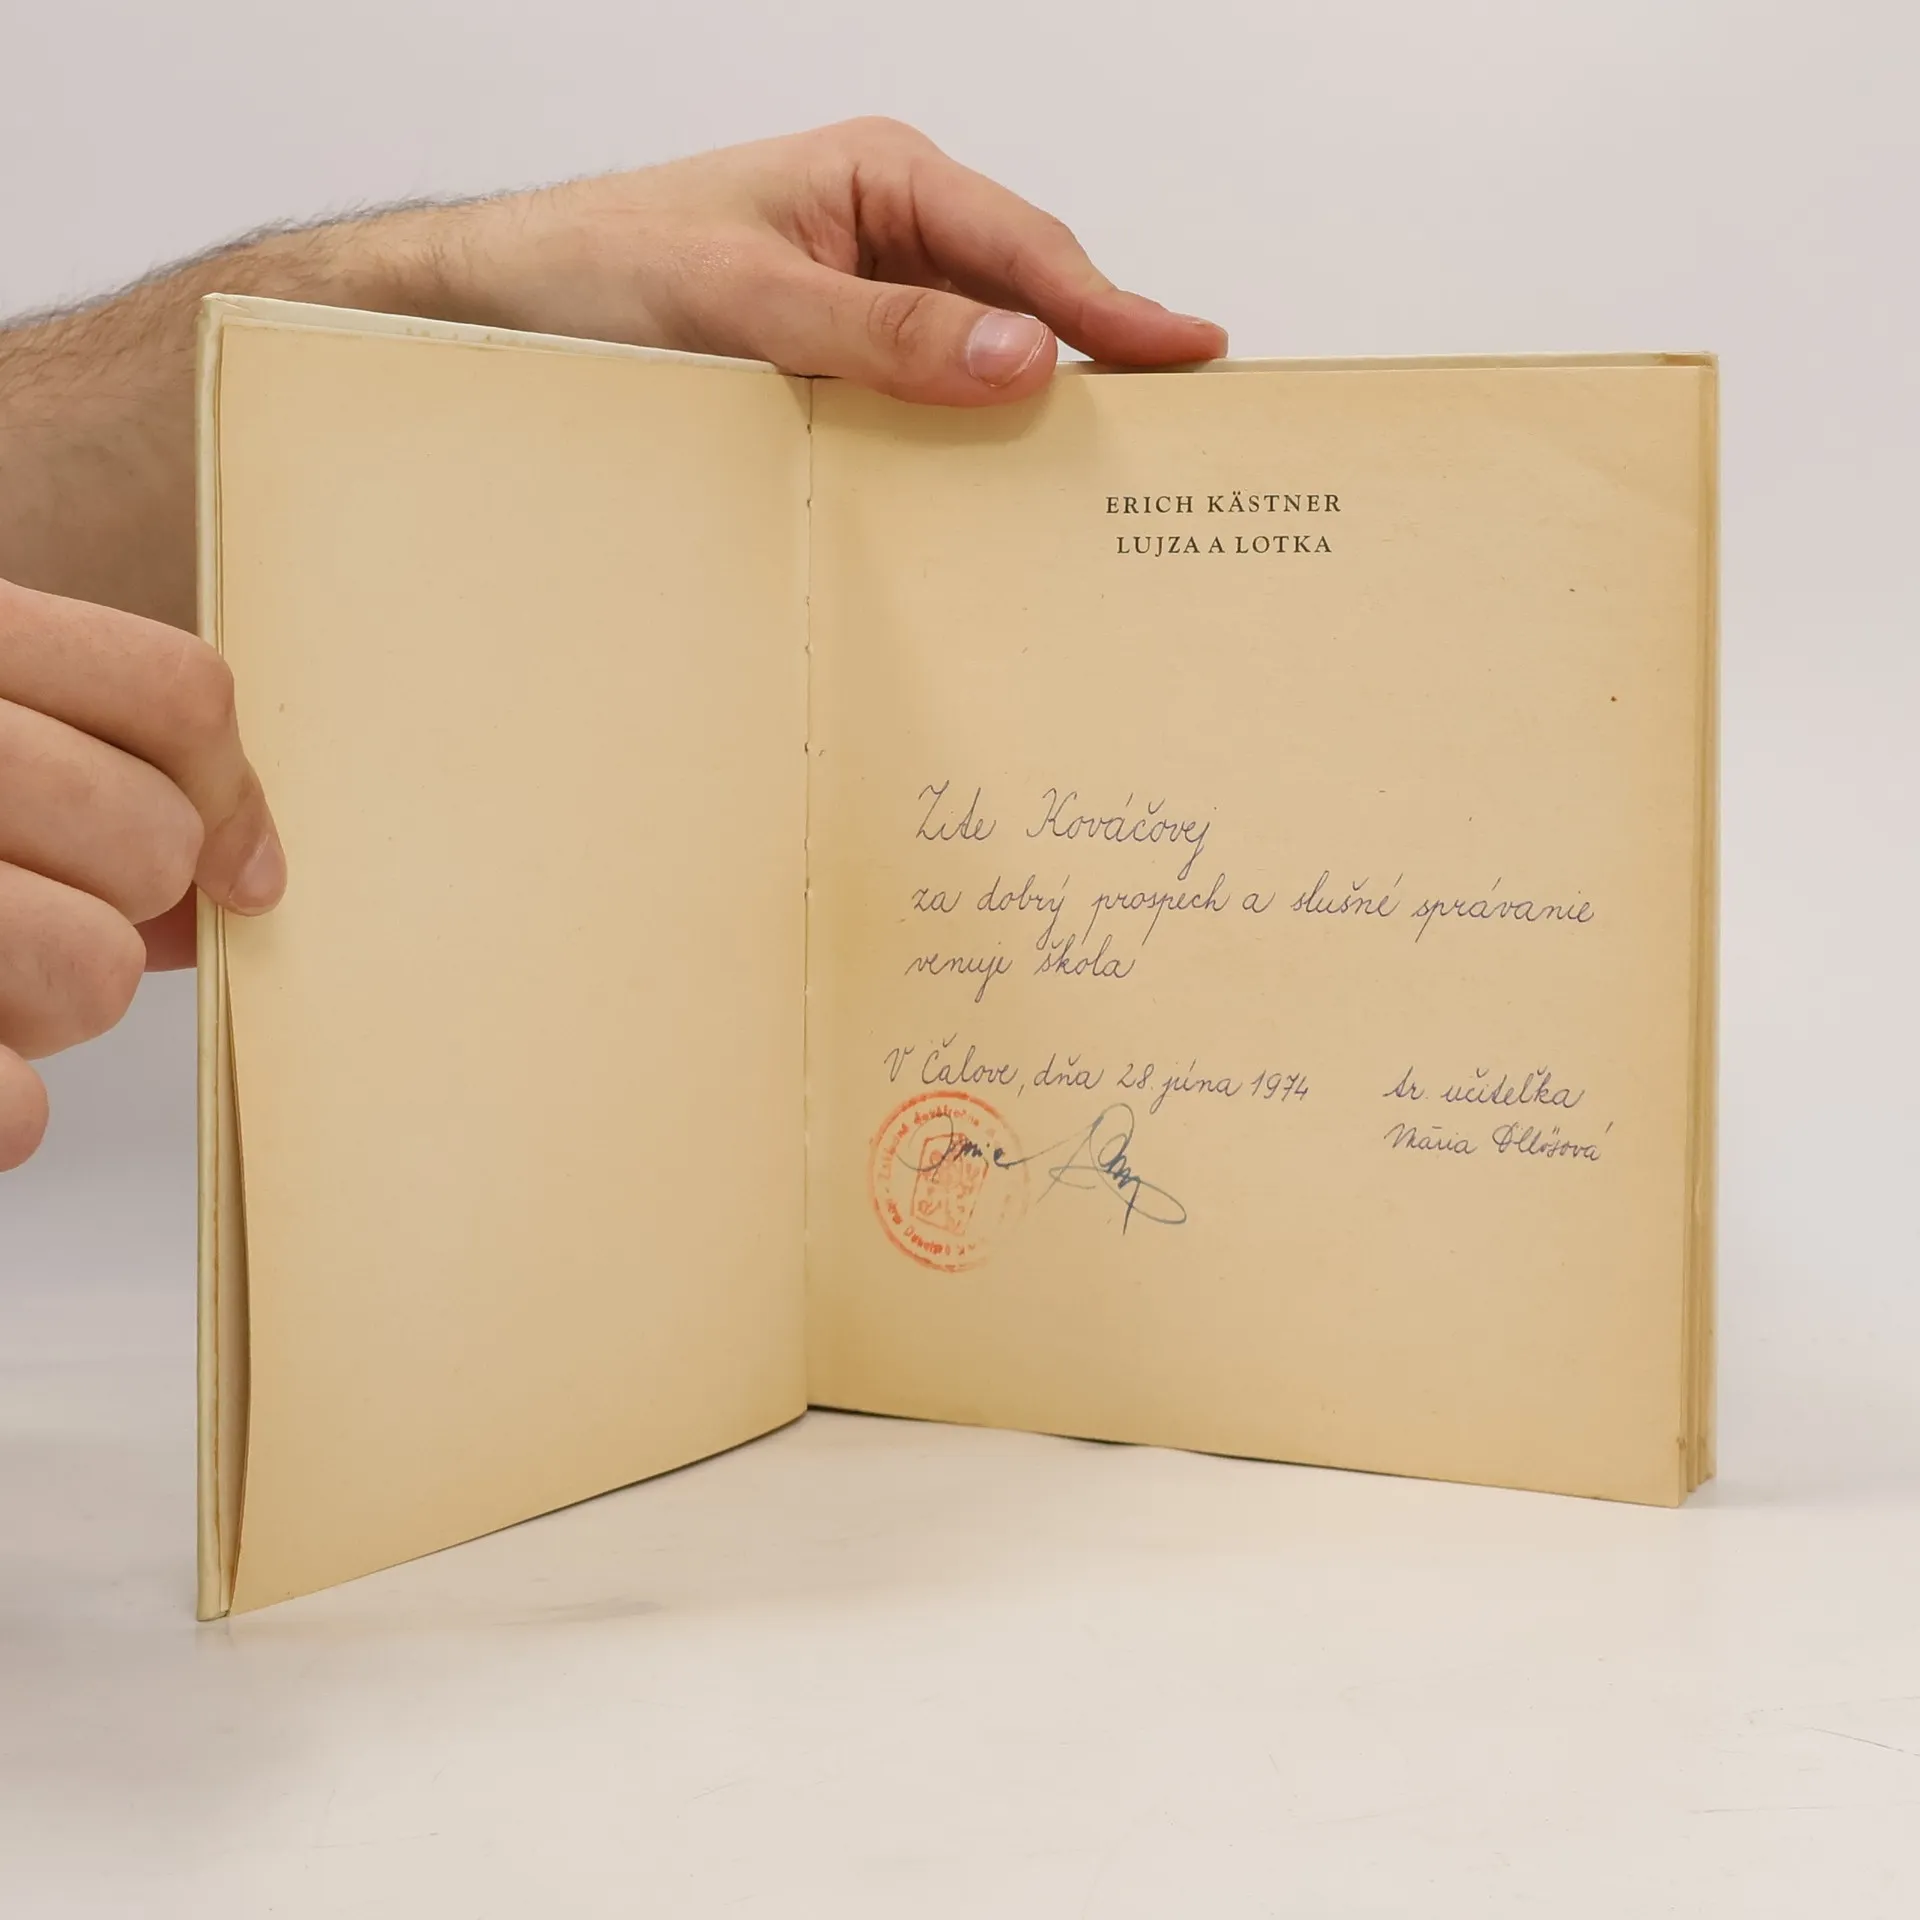 ERICH KÄSTNER
LUJZA A LOTKA
Zite Kováčovej
za dobrý prospech a slušné správanie
venuje škola
V Čalove, dňa 28. júna 1974
tr. učiteľka
Mária
Základná deväťročná